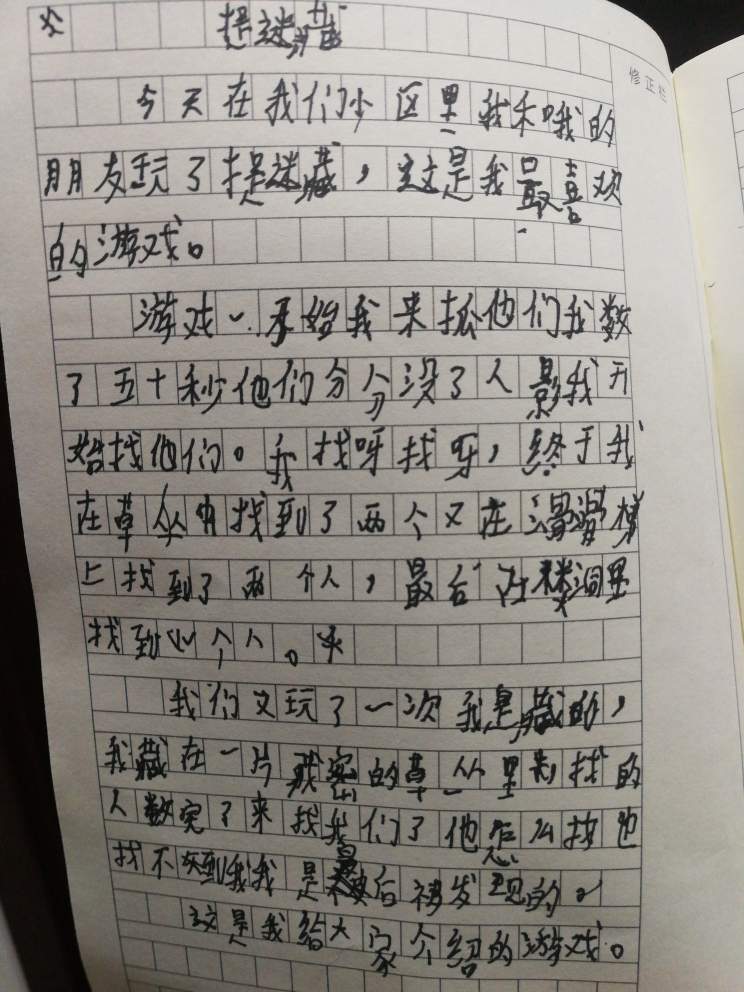 捉迷藏
修正栏
今天在我们小区里我和哦的
朋友玩了捉迷藏，这是我最喜欢
的游戏。
游戏一开始我来抓他们我数
了五十秒他们分分没了人影我开
始找他们。我找呀找呀，终于我
在草丛中找到了两个又在滑滑梯
上找到了两个人，最后在楼洞里
找到 个人。
我们又玩了一次我是藏的，
我藏在一片 密的草丛里 找的
人数完了来找我们了他怎么找也
找不到我我是最后被发现的
这是我给大家介绍的游戏。